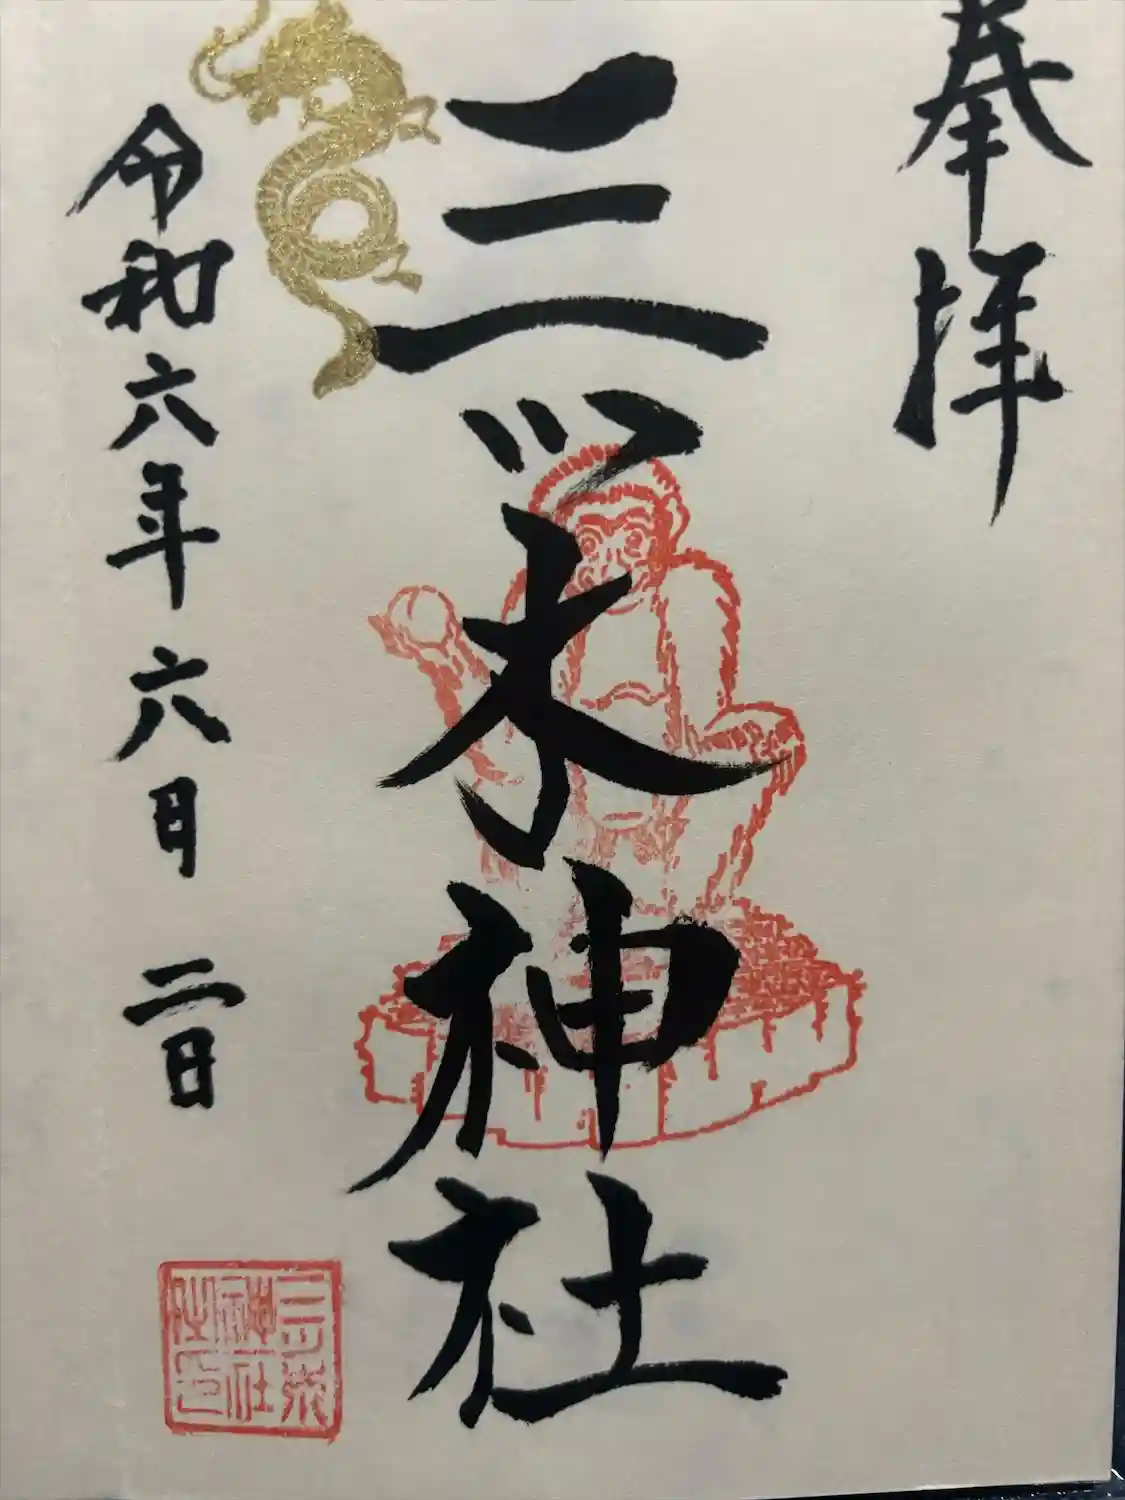 奉拝
三栄神社
令和六年六月二日
三栄
神社
之印